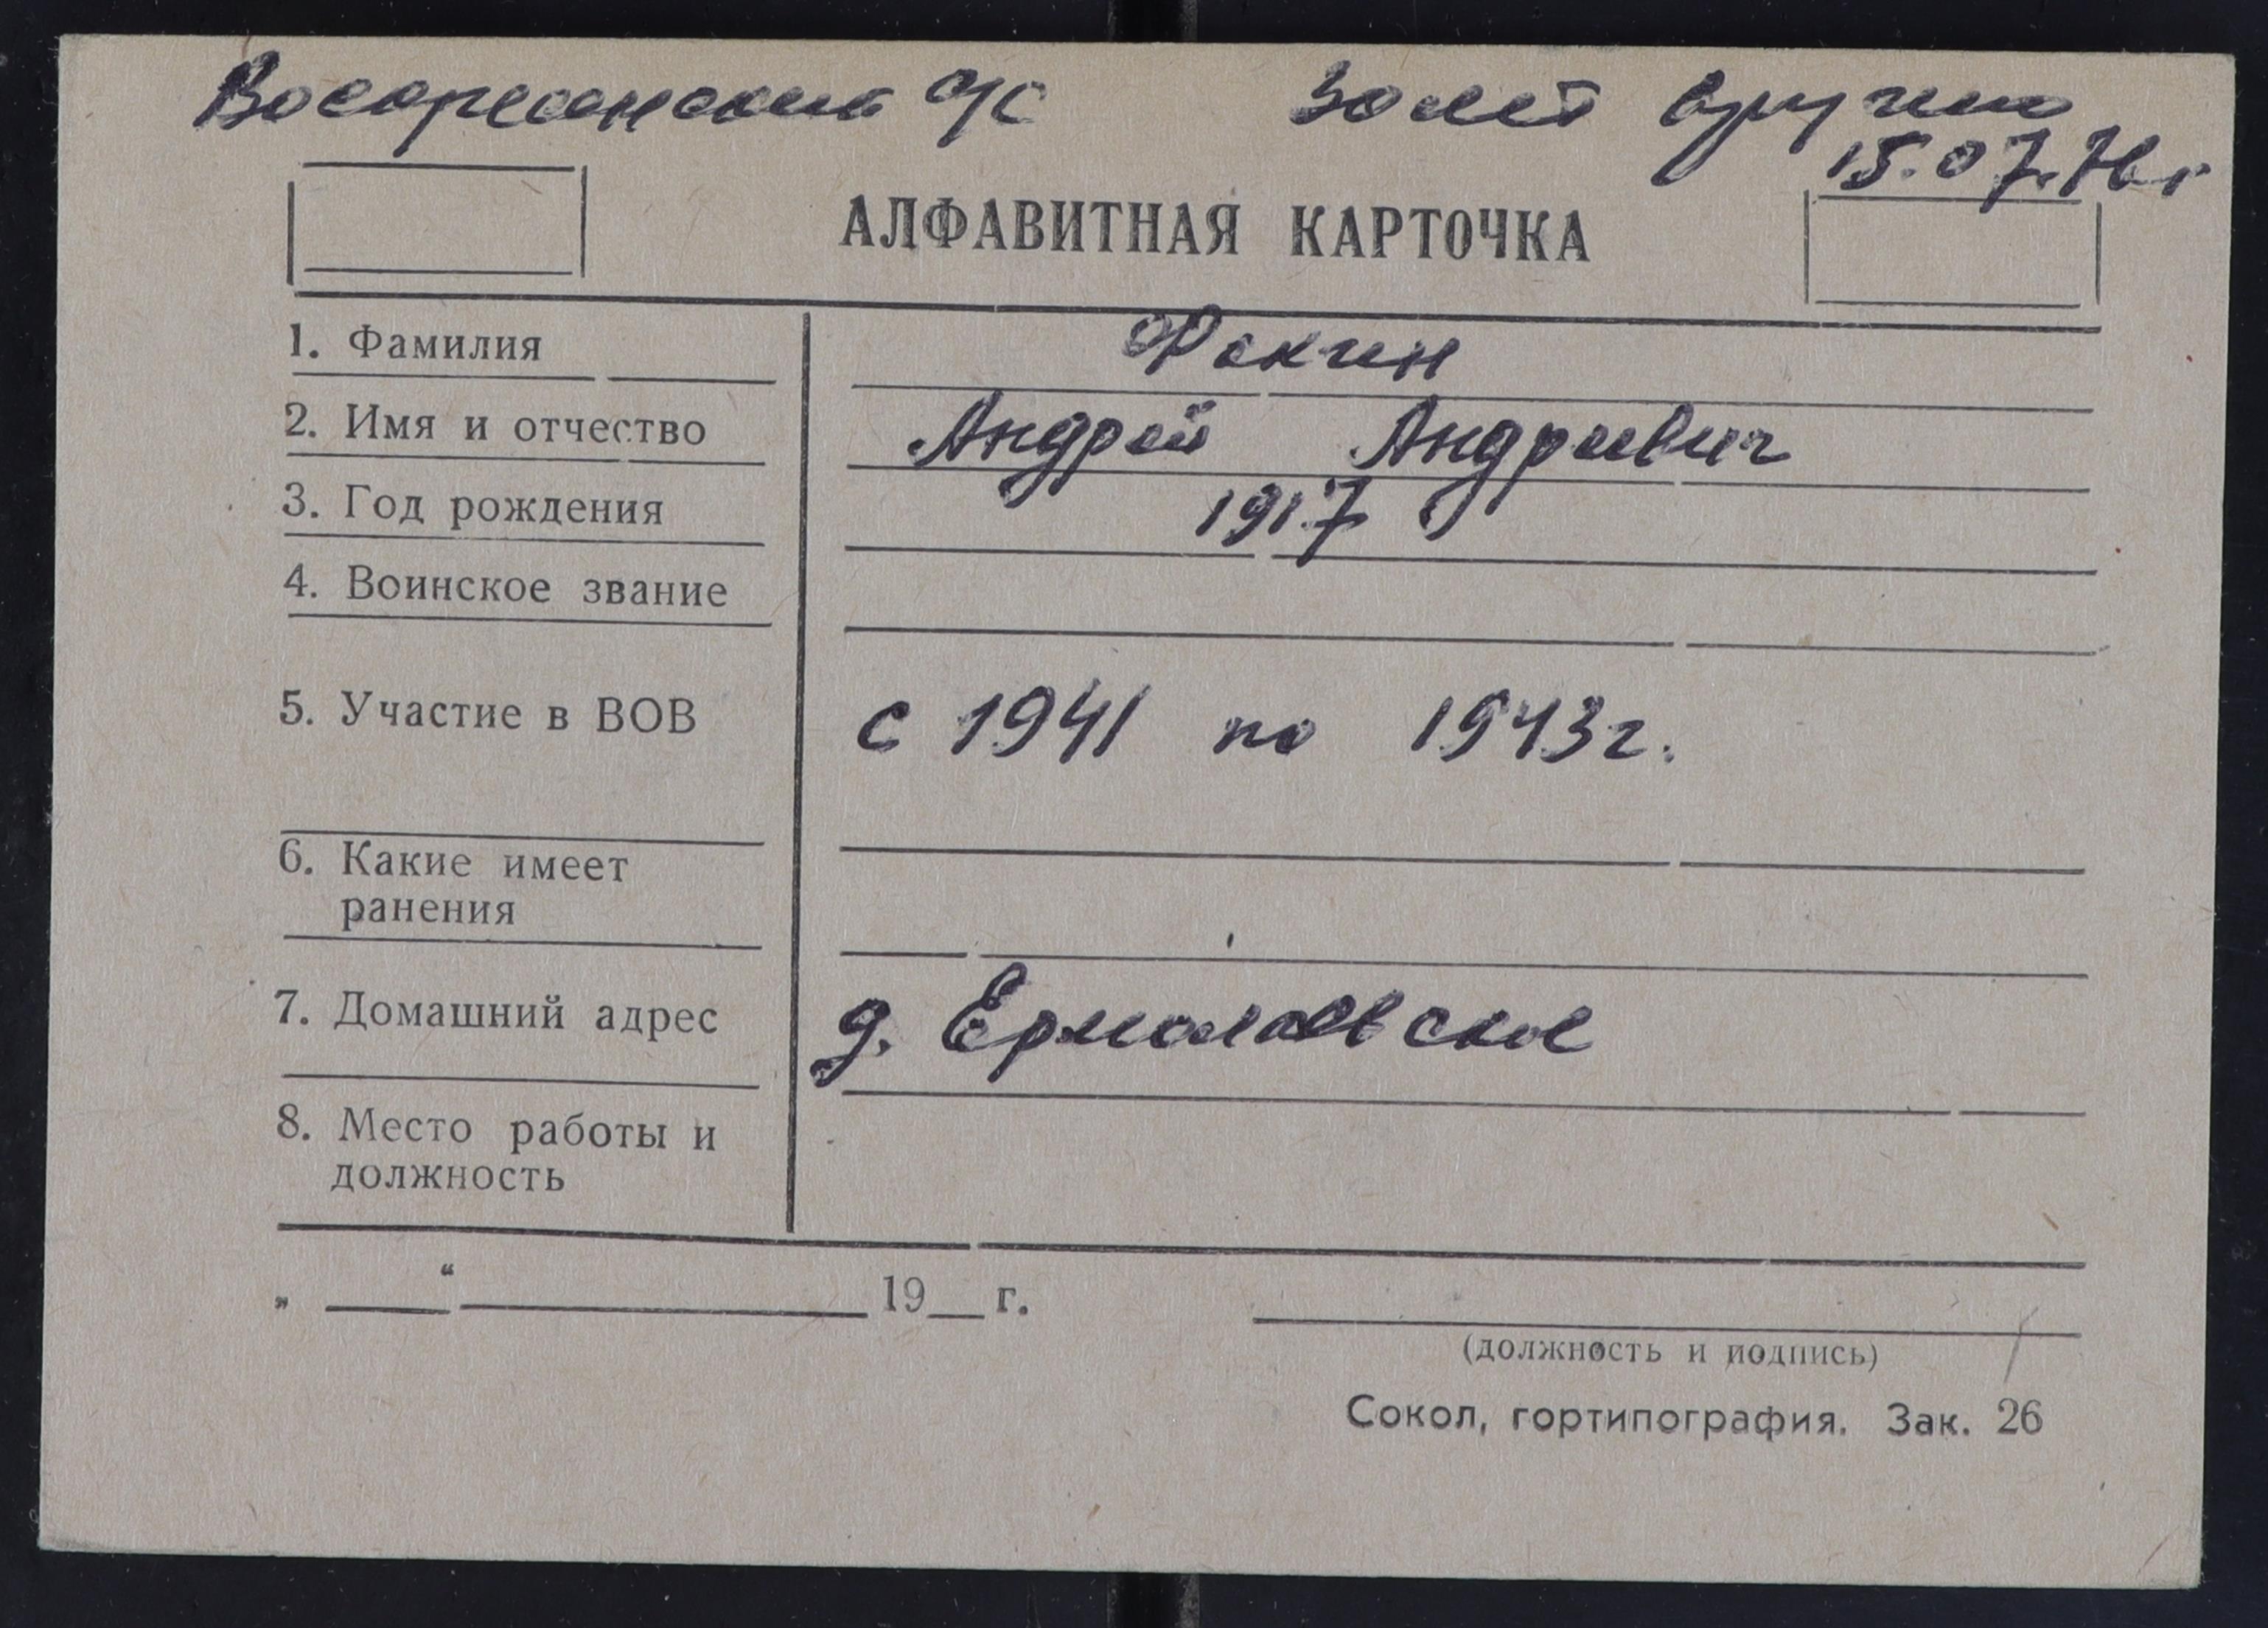 Воскресенский с/с 30 лет вручено
15.07.76г
АЛФАВИТНАЯ КАРТОЧКА
1. Фамилия Фокин
2. Имя и отчество Андрей Андреевич
3. Год рождения 1917
4. Воинское звание
5. Участие в ВОВ с 1941 по 1943г.
6. Какие имеет
ранения
7. Домашний адрес д. Ермолаевское
8. Место работы и
должность
„ “ 19 г.
(должность и подпись)
Сокол, гортипография. Зак. 26